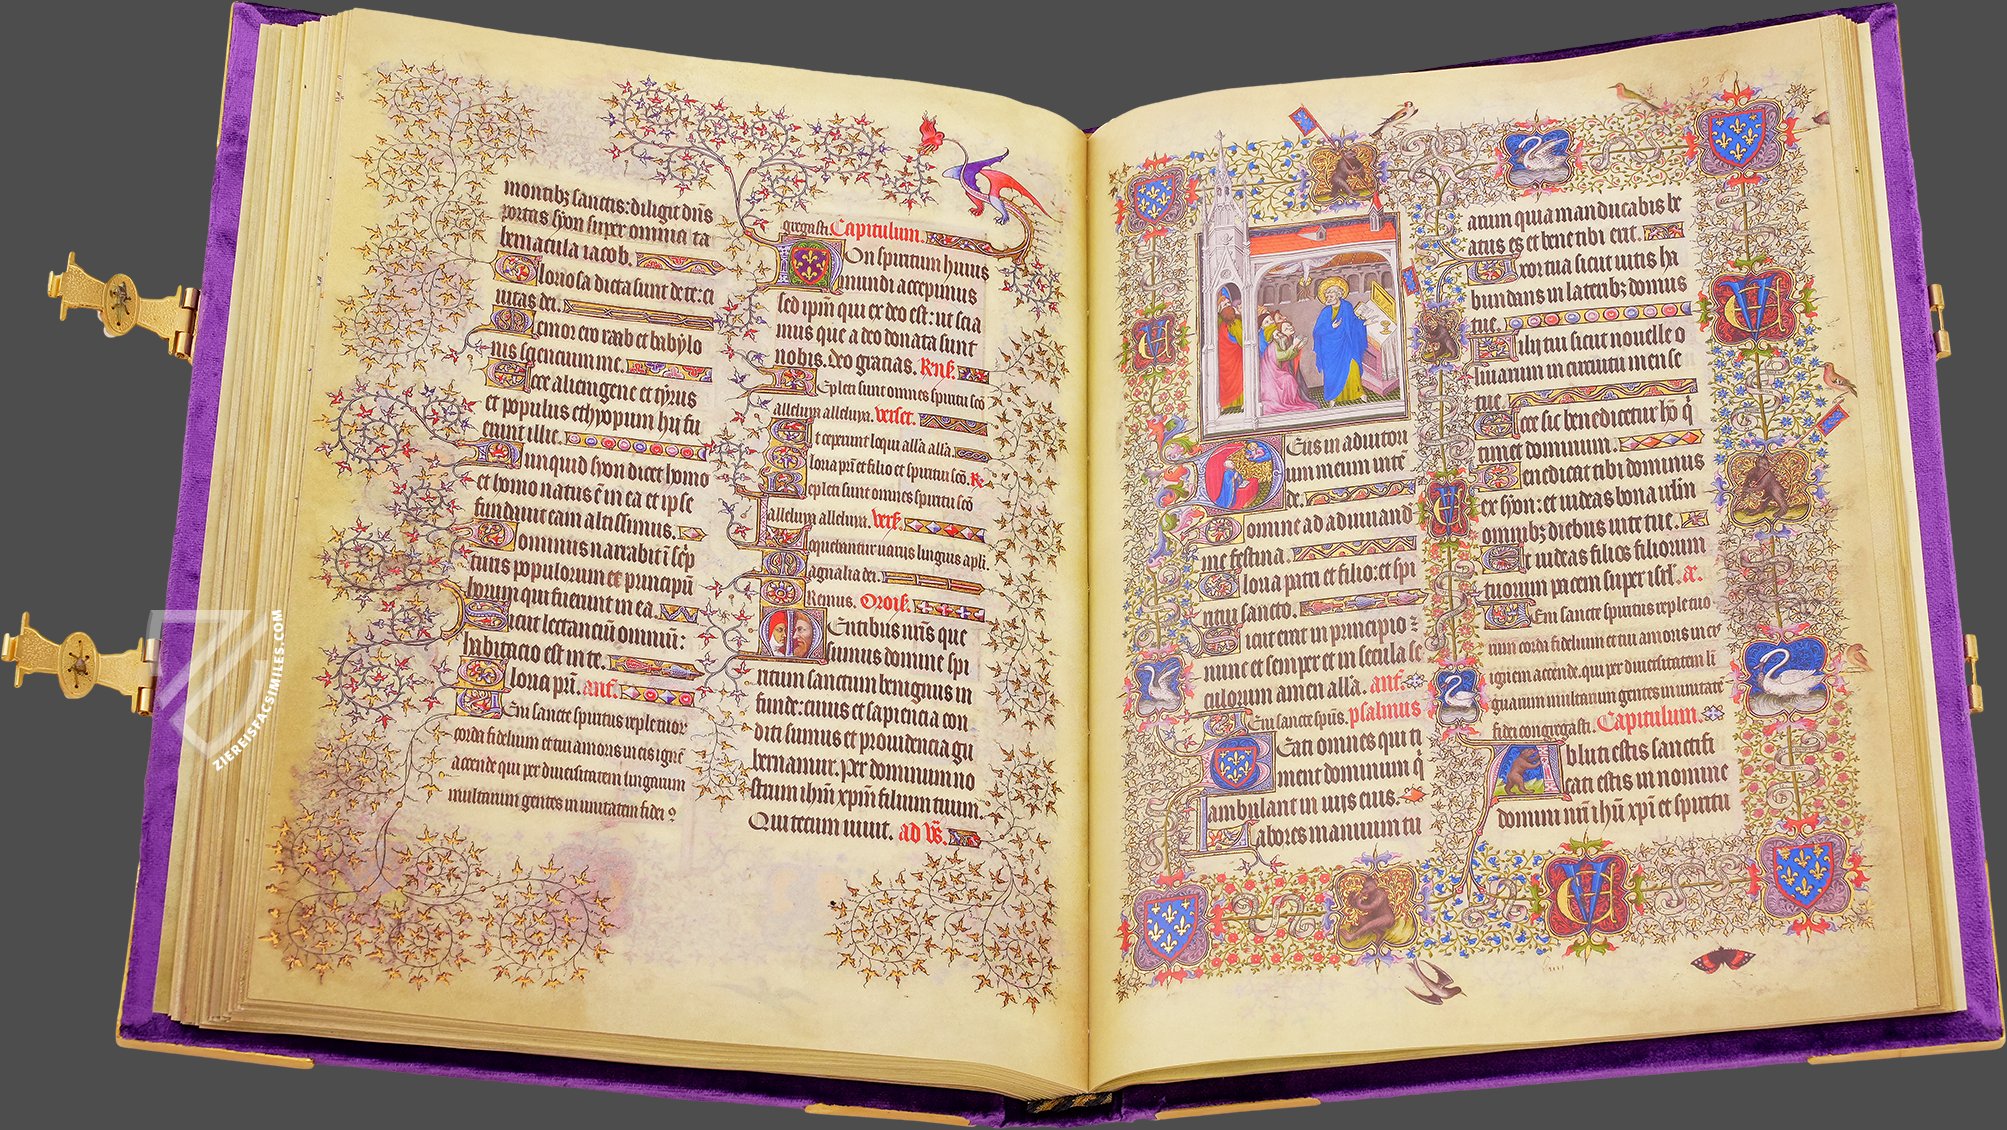 montibz sanctis: diligit dns
portas syon super omnia ta
bernacula iacob.
Gloriosa dicta sunt de te: ci
uitas dei.
Memor ero raab et babylo
nis scientium me.
Ecce alienigene et tyrus
et populus ethyopum hii fu
erunt illic.
Nunquid syon dicet homo
et homo natus e in ea et ipse
fundauit eam altissimus.
Dominus narrabit i scrip
turis populorum et principu
horum qui fuerunt in ea.
Sicut letanciu omniu:
habitacio est in te.
Gloria pri. ant.
Veni sancte spiritus reple tuor
corda fidelium et tui amoris in eis igne
accende qui per diuersitatem linguarum
multarum gentes in unitatem fidei
gregasti. Capitulum.
Non spiritum huius
mundi accepimus
sed ipm qui ex deo est: ut scia
mus que a deo donata sunt
nobis. deo gratias. Rns.
Repleti sunt omnes spiritu sco
alleluya alleluya. verset.
Et ceperunt loqui alla alla.
Gloria pri et filio et spiritui sco. R.
Repleti sunt omnes spiritu sco
alleluya alleluya. vers.
Loquebantur uariis linguis apli.
Magnalia dei.
Oremus. Orois.
Mentibus nris que
sumus domine spi
ritum sanctum benignus in
funde: cuius et sapiencia con
diti sumus et prouidencia gu
bernamur. Per dominum no
strum ihm xpm filium tuum.
Qui tecum uiuit. ad vs.
Deus in adiutori
um meum inte
de.
Domine ad adiuuand
me festina.
Gloria patri et filio: et spi
ritui sancto.
Sicut erat in principio z
nunc et semper et in secula se
culorum amen alla. ant.
Veni sancte spus. psalmus
Beati omnes qui ti
ment dominum q
ambulant in uiis eius.
Labores manuum tu
arum quia manducabis be
atus es et bene tibi erit.
Uxor tua sicut uitis ha
bundans in lateribz domus
tue.
Filii tui sicut nouelle o
liuarum in circuitu mense
tue.
Ecce sic benedicetur ho q
timet dominum.
Benedicat tibi dominus
ex syon: et uideas bona iherlm
omnibz diebus uite tue.
Et uideas filios filiorum
tuorum pacem super isrl. a.
Veni sancte spiritus reple tuo
rum corda fidelium et tui amoris in eis
ignem accende. qui per diuersitatem li
guarum multarum gentes in unitate
fidei congregasti. Capitulum.
Abluti estis sanctifi
cati estis in nomine
domini nri ihu xpi et spiritu
ZIEREISFACSIMILES.COM